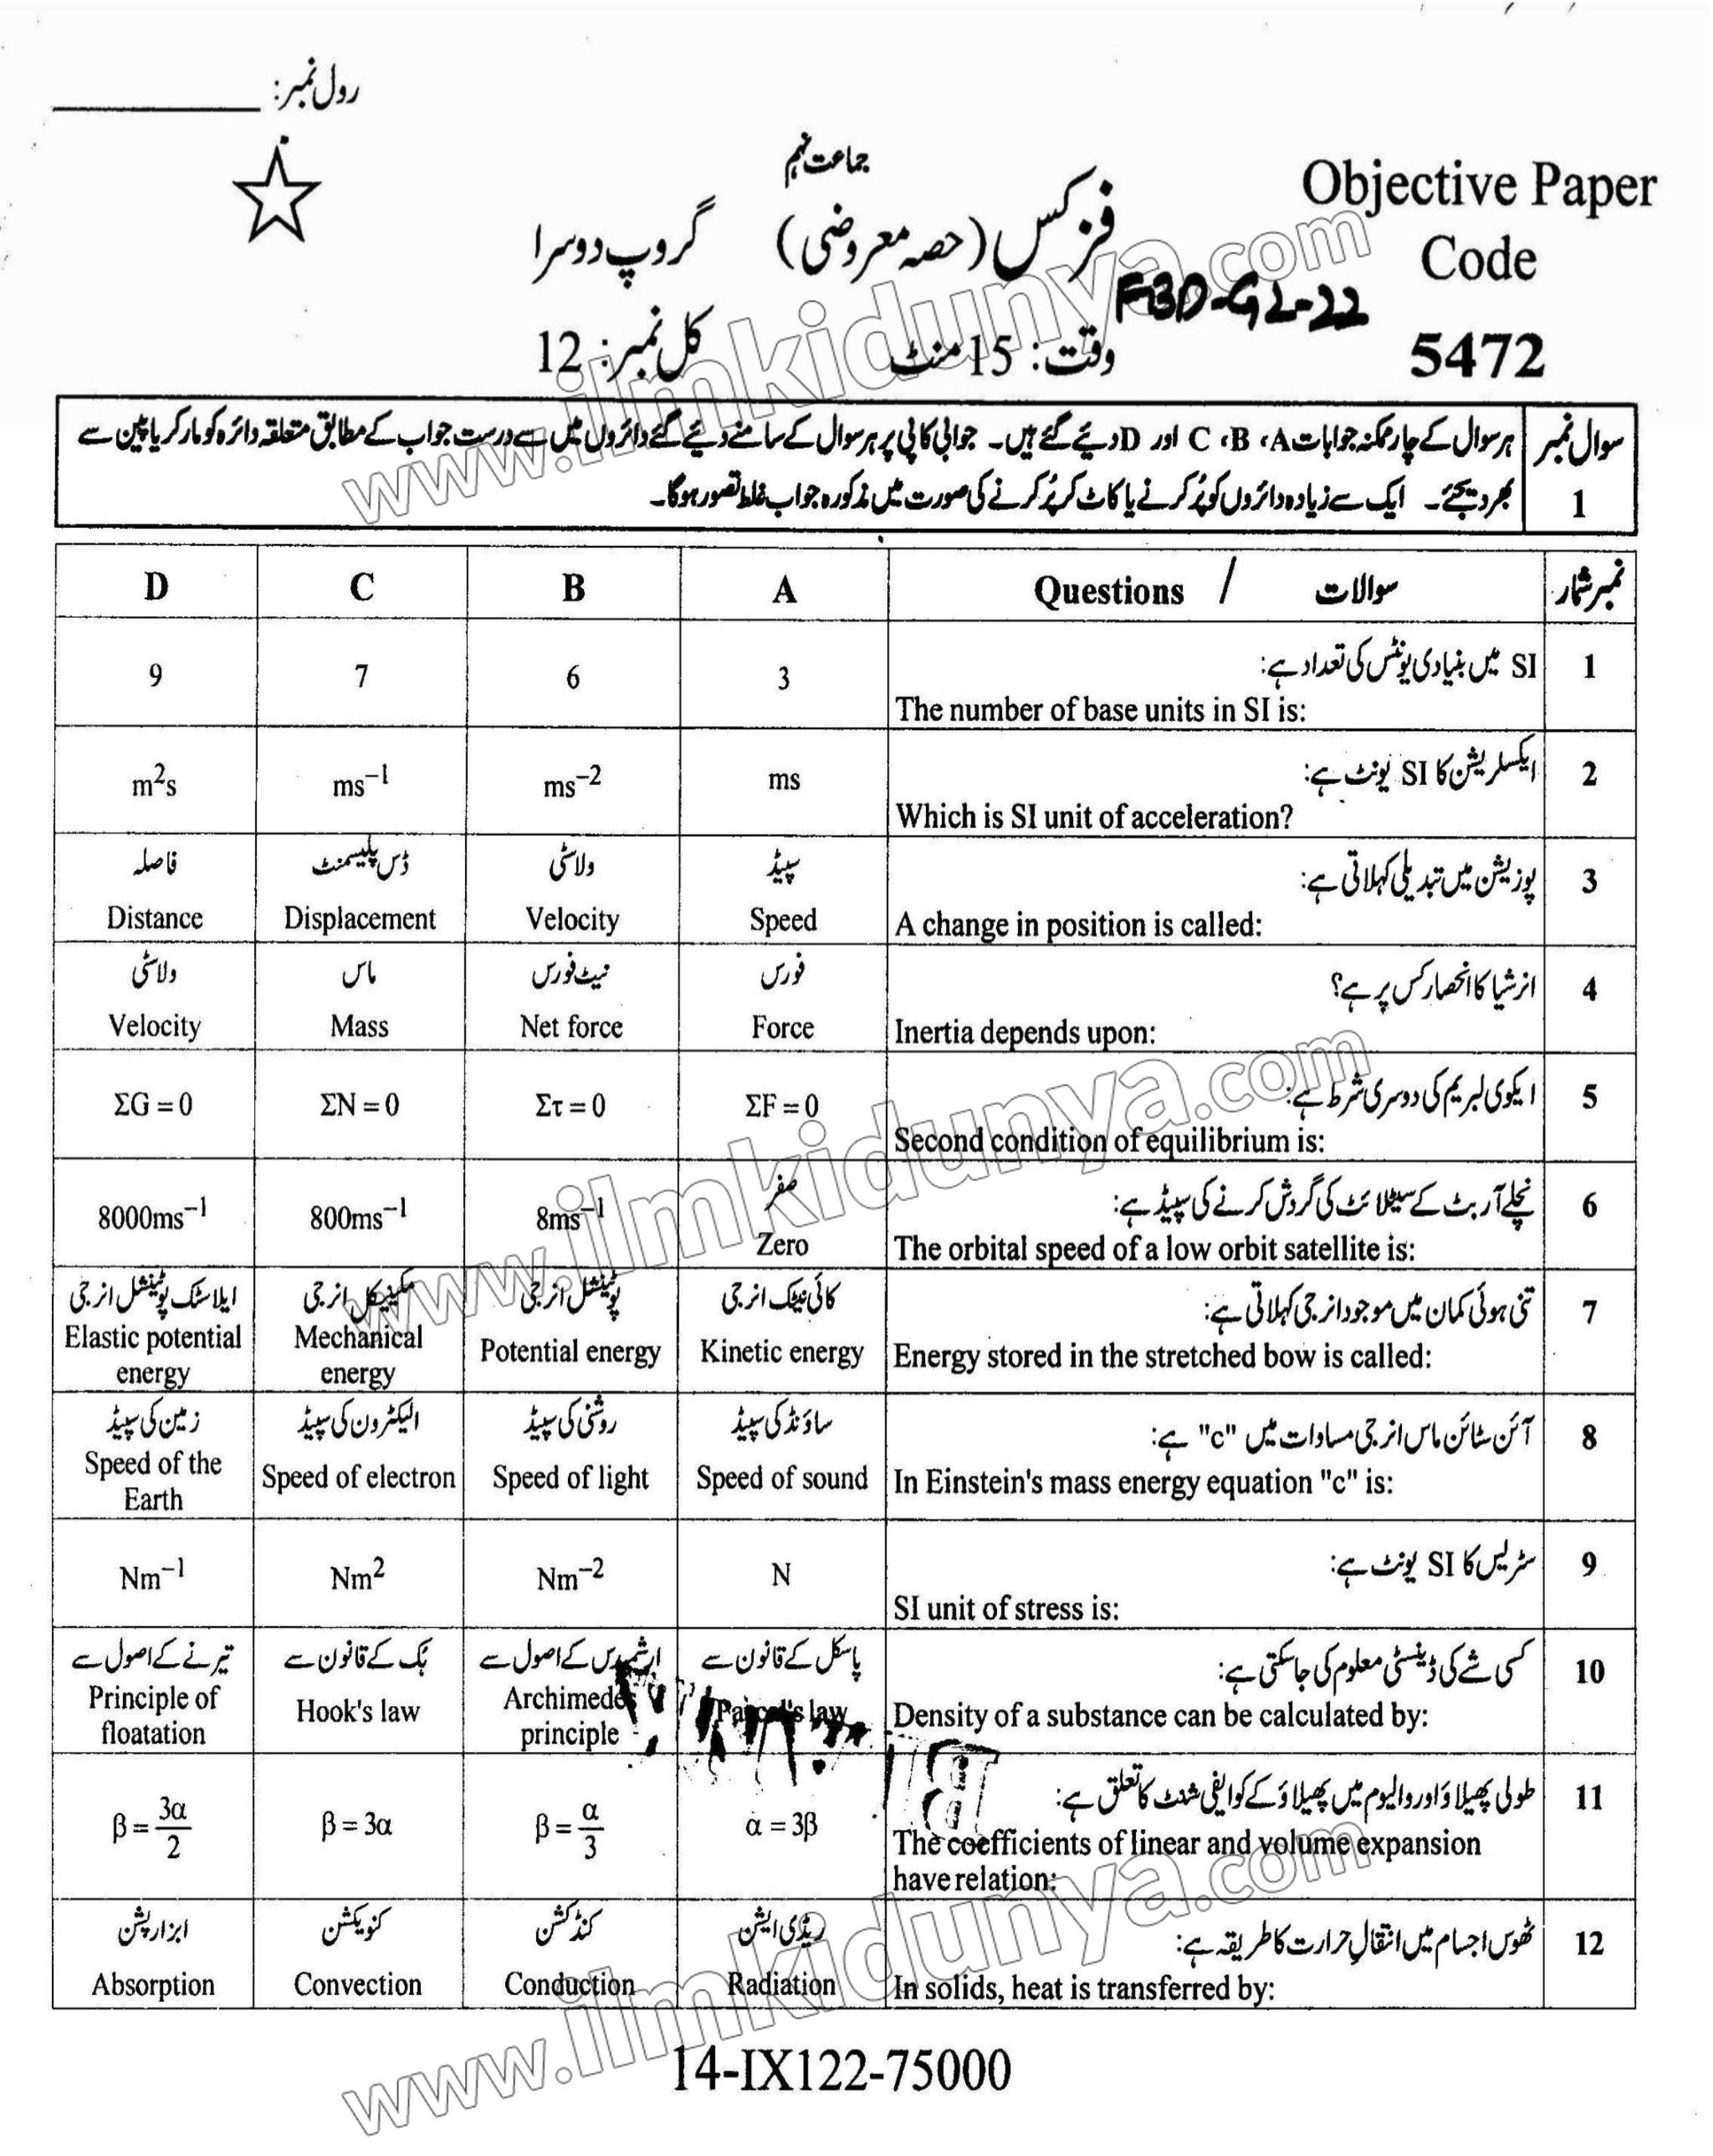 رول نمبر:
جماعت نہم
Objective Paper
Code
5472
فزکس (حصہ معروضی) گروپ دوسرا
FBD-G2-22
وقت: 15 منٹ کل نمبر: 12
سوال نمبر 1
ہر سوال کے چار ممکنہ جوابات A، B، C اور D دیئے گئے ہیں۔ جوابی کاپی پر ہر سوال کے سامنے دیئے گئے دائروں میں سے درست جواب کے مطابق متعلقہ دائرہ کو مارکر یا پین سے
بھر دیجئے۔ ایک سے زیادہ دائروں کو پُر کرنے یا کاٹ کر پُر کرنے کی صورت میں مذکورہ جواب غلط تصور ہوگا۔
نمبر شمار سوالات / Questions A B C D
1 SI میں بنیادی یونٹس کی تعداد ہے:
The number of base units in SI is:
3 6 7 9
2 ایکسلریشن کا SI یونٹ ہے:
Which is SI unit of acceleration?
ms ms⁻² ms⁻¹ m²s
3 پوزیشن میں تبدیلی کہلاتی ہے:
A change in position is called:
سپیڈ ولاسٹی ڈس پلیسمنٹ فاصلہ
Speed Velocity Displacement Distance
4 انرشیا کا انحصار کس پر ہے؟
Inertia depends upon:
فورس نیٹ فورس ماس ولاسٹی
Force Net force Mass Velocity
5 ایکوی لبریم کی دوسری شرط ہے:
Second condition of equilibrium is:
ΣF = 0 Στ = 0 ΣN = 0 ΣG = 0
6 نچلے آربٹ کے سیٹلائٹ کی گردش کرنے کی سپیڈ ہے:
The orbital speed of a low orbit satellite is:
صفر
Zero 8ms⁻¹ 800ms⁻¹ 8000ms⁻¹
7 تنی ہوئی کمان میں موجود انرجی کہلاتی ہے:
Energy stored in the stretched bow is called:
کائی نیٹک انرجی پوٹینشل انرجی مکینیکل انرجی ایلاسٹک پوٹینشل انرجی
Kinetic energy Potential energy Mechanical energy Elastic potential energy
8 آئن سٹائن ماس انرجی مساوات میں "c" ہے:
In Einstein's mass energy equation "c" is:
ساؤنڈ کی سپیڈ روشنی کی سپیڈ الیکٹرون کی سپیڈ زمین کی سپیڈ
Speed of sound Speed of light Speed of electron Speed of the Earth
9 سٹریس کا SI یونٹ ہے:
SI unit of stress is:
N Nm⁻² Nm² Nm⁻¹
10 کسی شے کی ڈینسٹی معلوم کی جاسکتی ہے:
Density of a substance can be calculated by:
پاسکل کے قانون سے ارشمیدس کے اصول سے ہک کے قانون سے تیرنے کے اصول سے
Pascal's law Archimedes principle Hook's law Principle of floatation
11 طولی پھیلاؤ اور والیوم میں پھیلاؤ کے کوایفی شنٹ کا تعلق ہے:
The coefficients of linear and volume expansion
have relation:
α = 3β β = α/3 β = 3α β = 3α/2
12 ٹھوس اجسام میں انتقالِ حرارت کا طریقہ ہے:
In solids, heat is transferred by:
ریڈی ایشن کنڈکشن کنویکشن ابزارپشن
Radiation Conduction Convection Absorption
14-IX122-75000
www.ilmkidunya.com
www.ilmkidunya.com
www.ilmkidunya.com